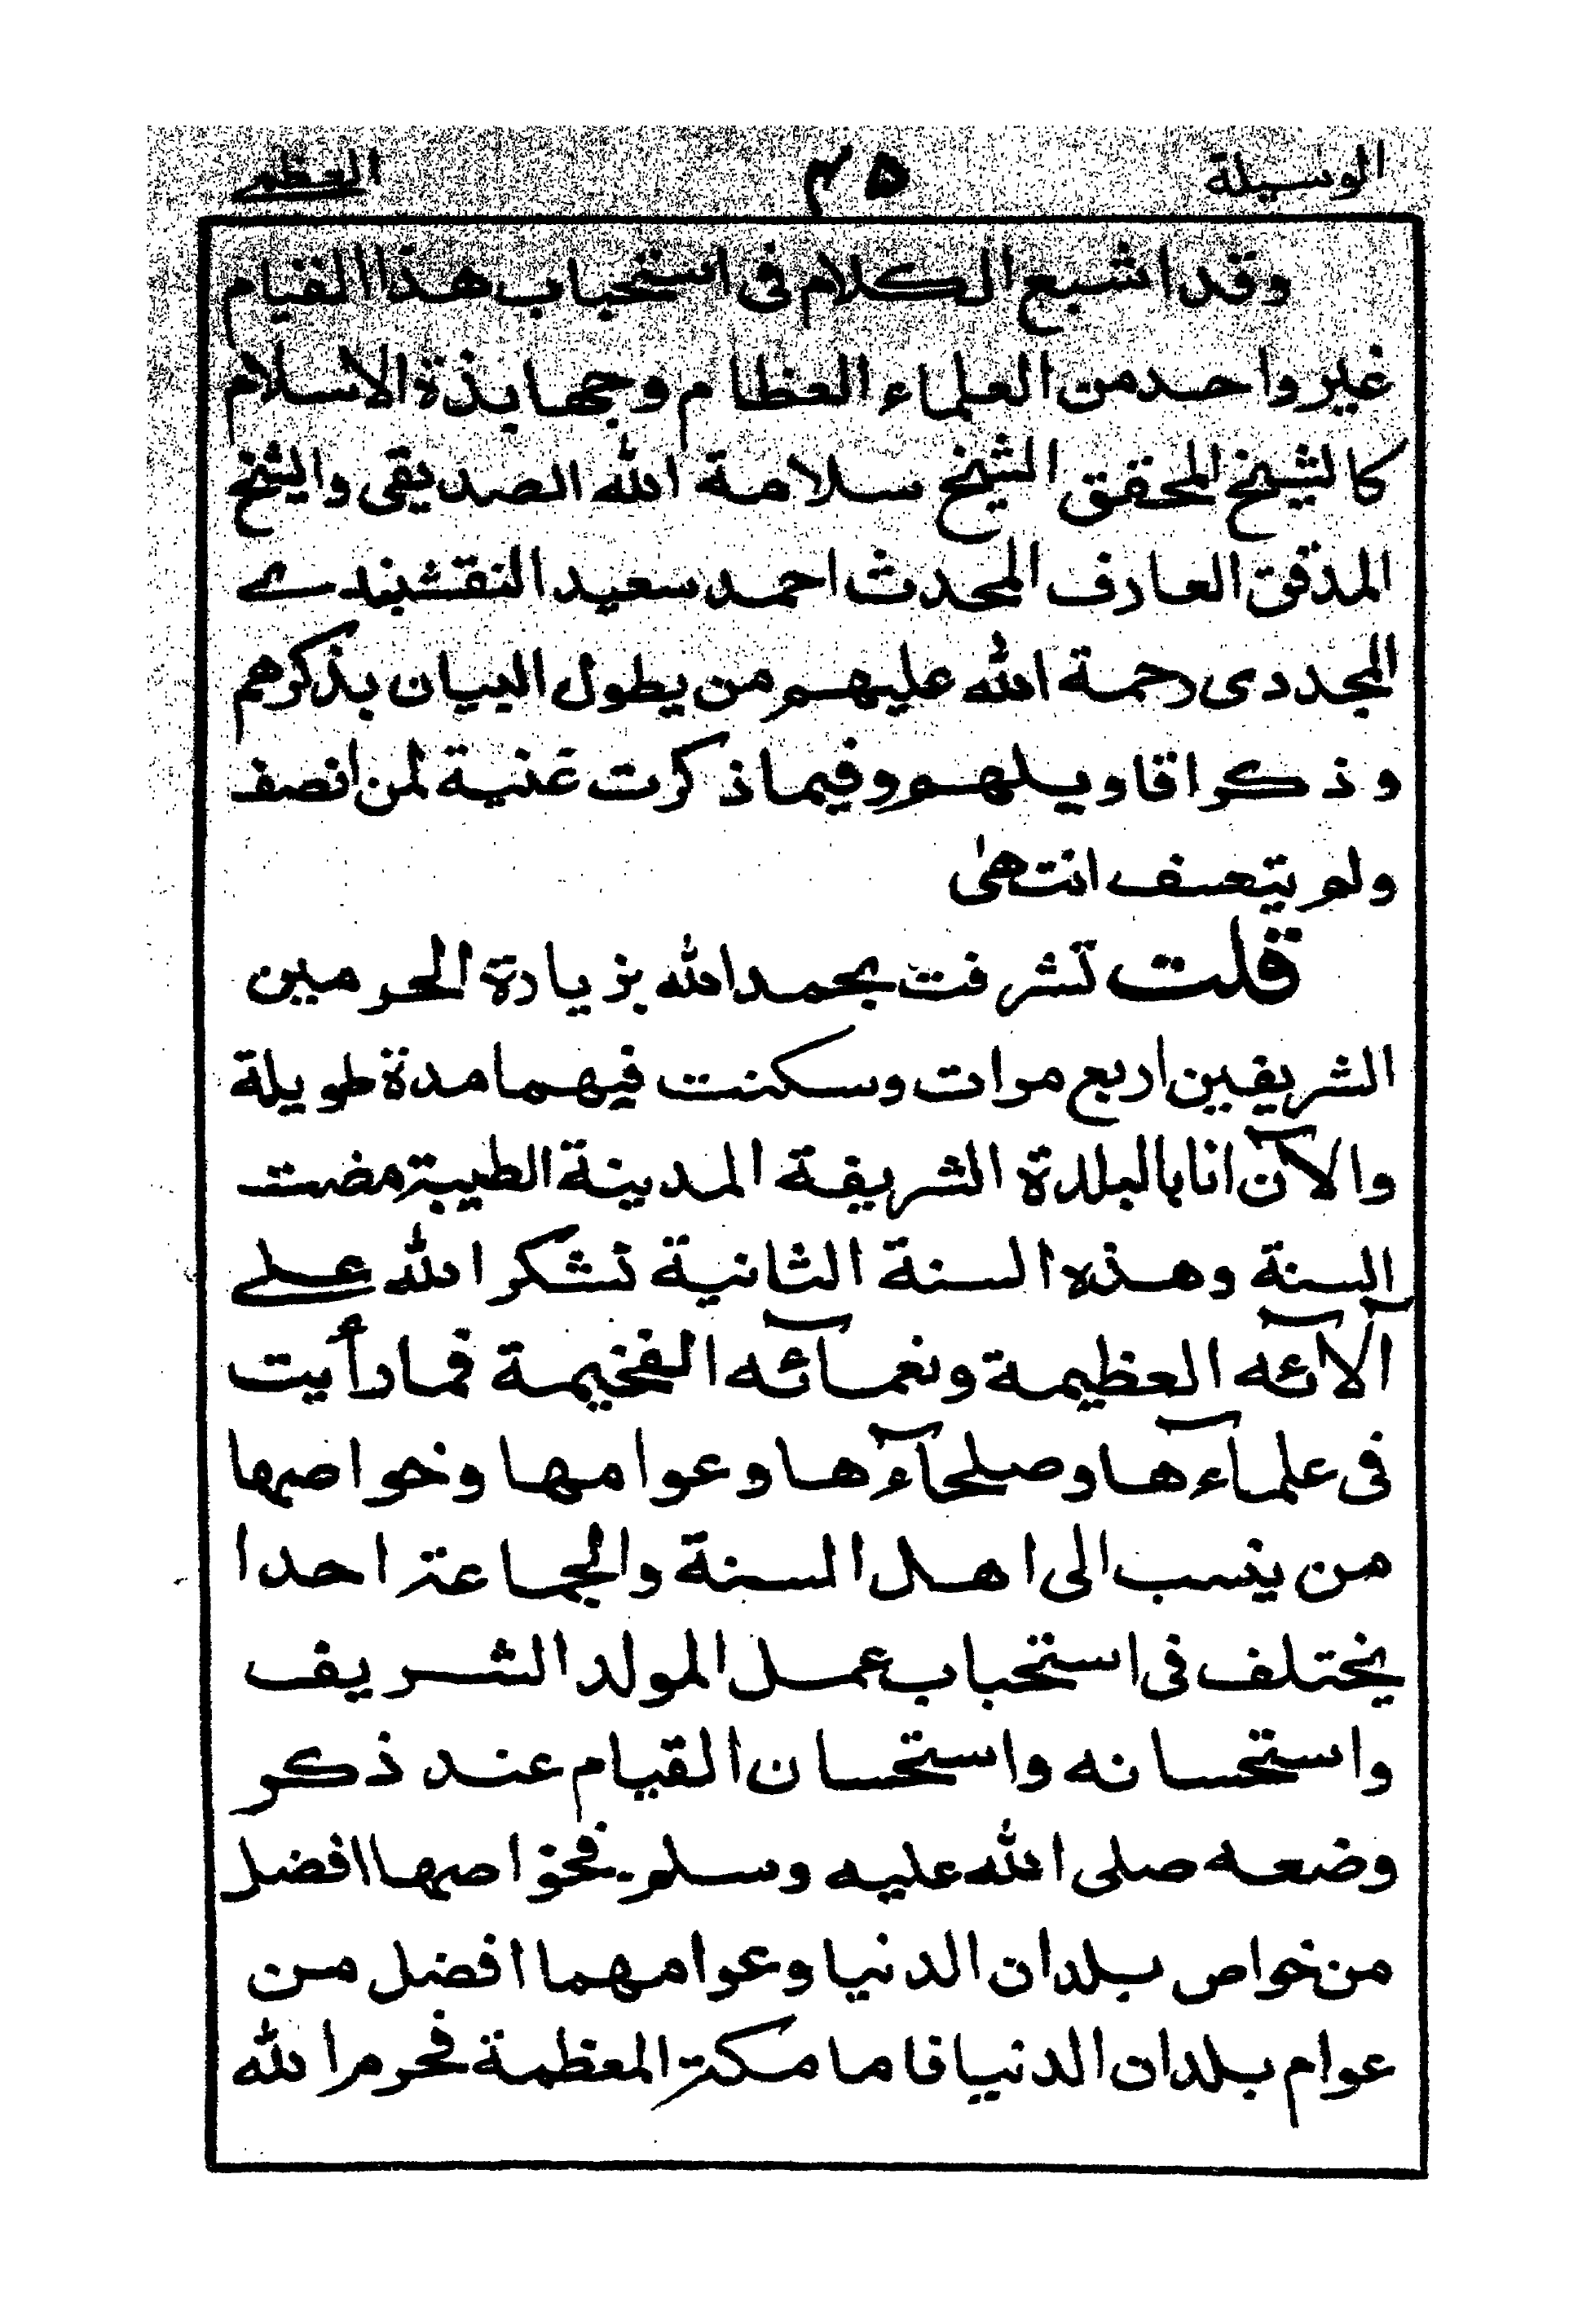 الوسيلة ٥٣ العظمے
وقد اشبع الكلام فى استحباب هذا القيام
غير واحد من العلماء العظام وجهابذة الاسلام
كالشيخ المحقق الشيخ سلامة الله الصديقى والشيخ
المدقق العارف المحدث احمد سعيد النقشبندے
المجددى رحمة الله عليهم من يطول البيان بذكرهم
وذكر اقاويلهم وفيما ذكرت غنية لمن انصف
ولم يتعسف انتهىٰ
قلت تشرفت بحمد الله بزيارة الحرمين
الشريفين اربع مرات وسكنت فيهما مدة طويلة
والآن انا بالبلدة الشريفة المدينة الطيبة مضت
السنة وهذه السنة الثانية نشكر الله علے
آلآئه العظيمة ونعمآئه الفخيمة فما رأيت
فى علمآءها وصلحآءها وعوامها وخواصها
من ينسب الى اهل السنة والجماعة احدا
يختلف فى استحباب عمل المولد الشريف
واستحسانه واستحسان القيام عند ذكر
وضعه صلى الله عليه وسلم. فخواصها افضل
من خواص بلدان الدنيا وعوامهما افضل من
عوام بلدان الدنيا فاما مكة المعظمة فحرم الله